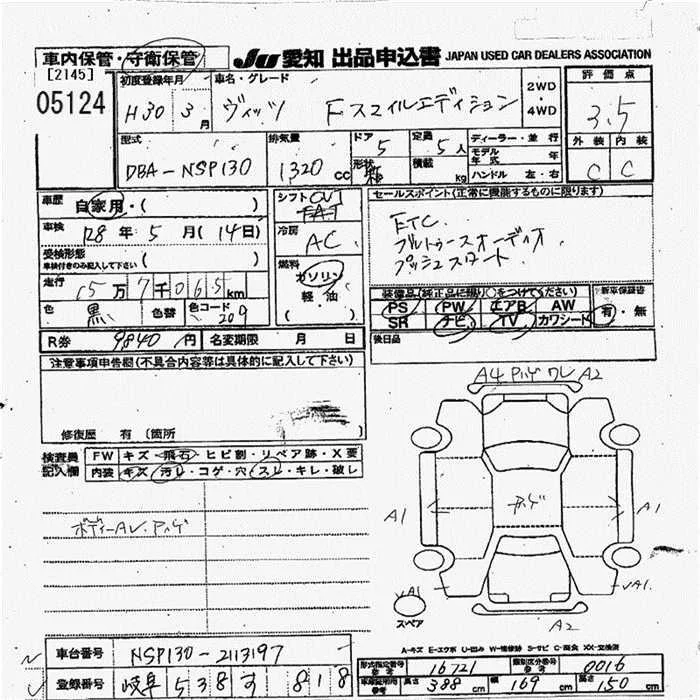 車内保管・守衛保管
JU 愛知 出品申込書 JAPAN USED CAR DEALERS ASSOCIATION
[2145]
05124
初度登録年月 車名・グレード
H30 3月 ヴィッツ Fスマイルエディション
2WD・4WD
評価点
3.5
外装 内装
C C
型式 排気量 ドア 定員 ディーラー・並行
DBA-NSP130 1320cc 5 5人
形状 積載 kg
モデル年式 年
ハンドル 左・右
車歴 自家用・( )
車検 R8年 5月 (14日)
受検形態
車検付きのみ記入して下さい ( )
走行 15万7千065km
色 黒 色替 色コード 209
シフト CVT
FAT
冷房 AC
燃料 ガソリン
軽・油
( )
セールスポイント(正常に機能するものに限ります)
ETC.
ブルートゥースオーディオ
プッシュスタート
装備品(純正品に限り○をつけて下さい)
PS PW エアB AW
SR ナビ TV カワシート
新車保証書
有・無
R券 9840円 名変期限 月 日
後日品
注意事項申告欄(不具合内容等は具体的に記入して下さい)
修復歴 有 (箇所
検査員記入欄
FW キズ・飛石・ヒビ割・リペア跡・X要
内装 キズ・汚レ・コゲ・穴・スレ・キレ・破レ
ボディーAU.アトゲ
A4 ワレ A2
A1 A1
A1 A1.
スペア
A2
A-キズ E-エクボ U-凹み W-補修跡 S-サビ C-腐食 XX-交換済
車台番号 NSP130-2113197
登録番号 岐阜 538 す 818
型式指定番号 参考 16721 類別区分番号 参考 0016
車検証用 参考 長さ 388cm 幅 169cm 高さ 150cm